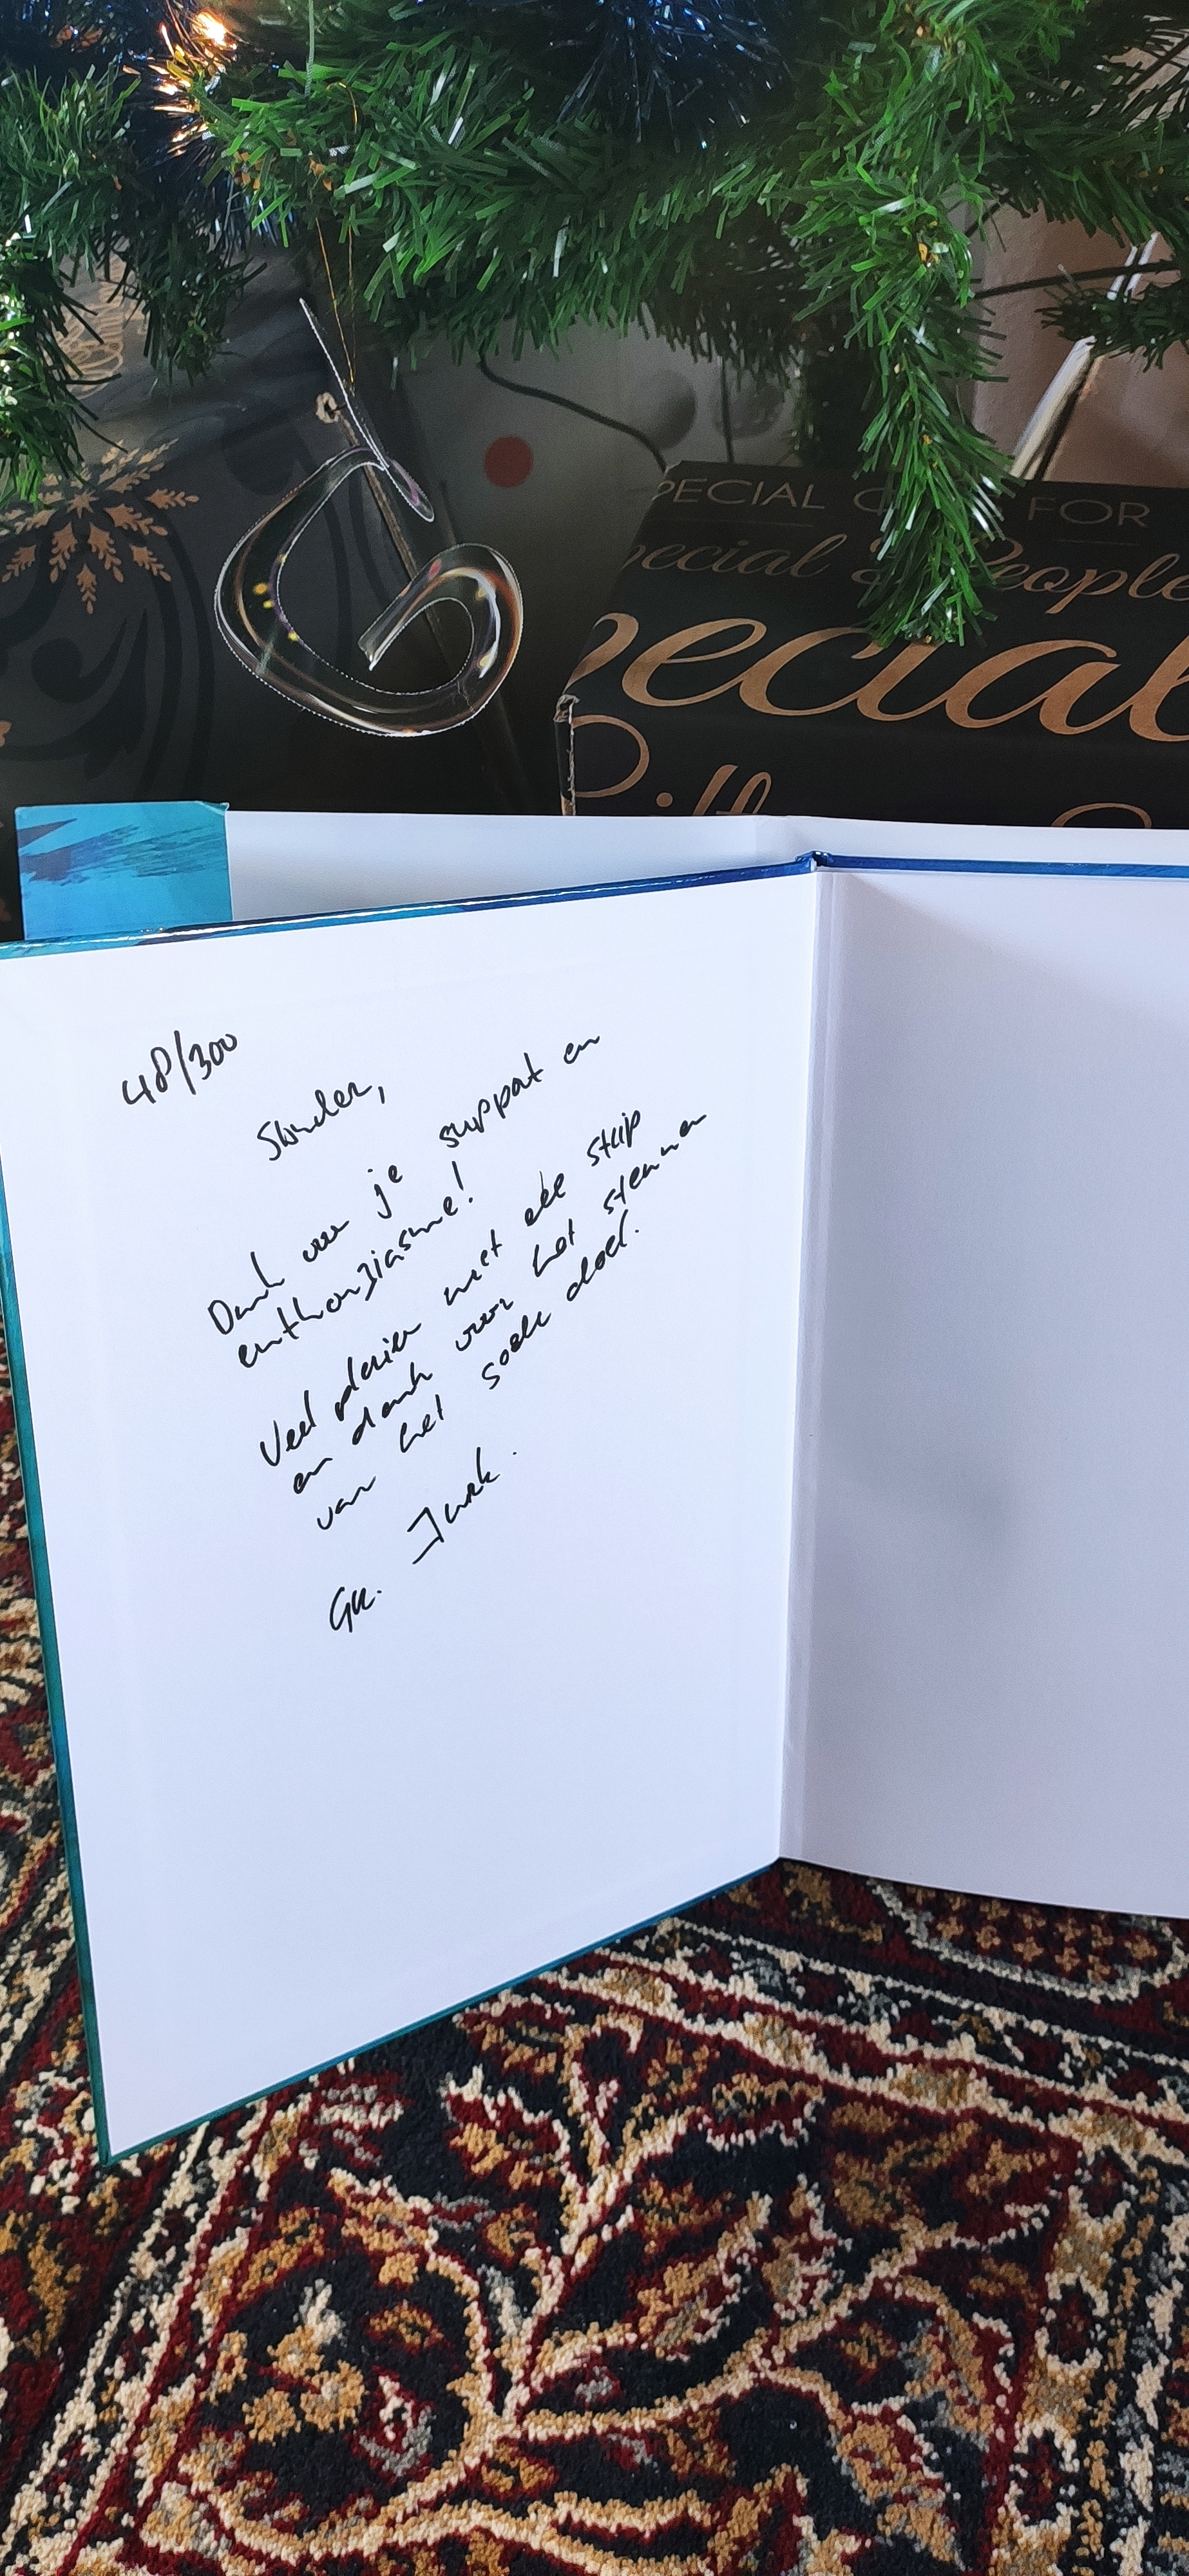 PECIAL FOR
pecial & People
pecial
48/300
Dank voor je support en
enthousiasme!
Veel plezier met elk strip
en dank voor het steunen
van het goede doel.
Gr. Junk.